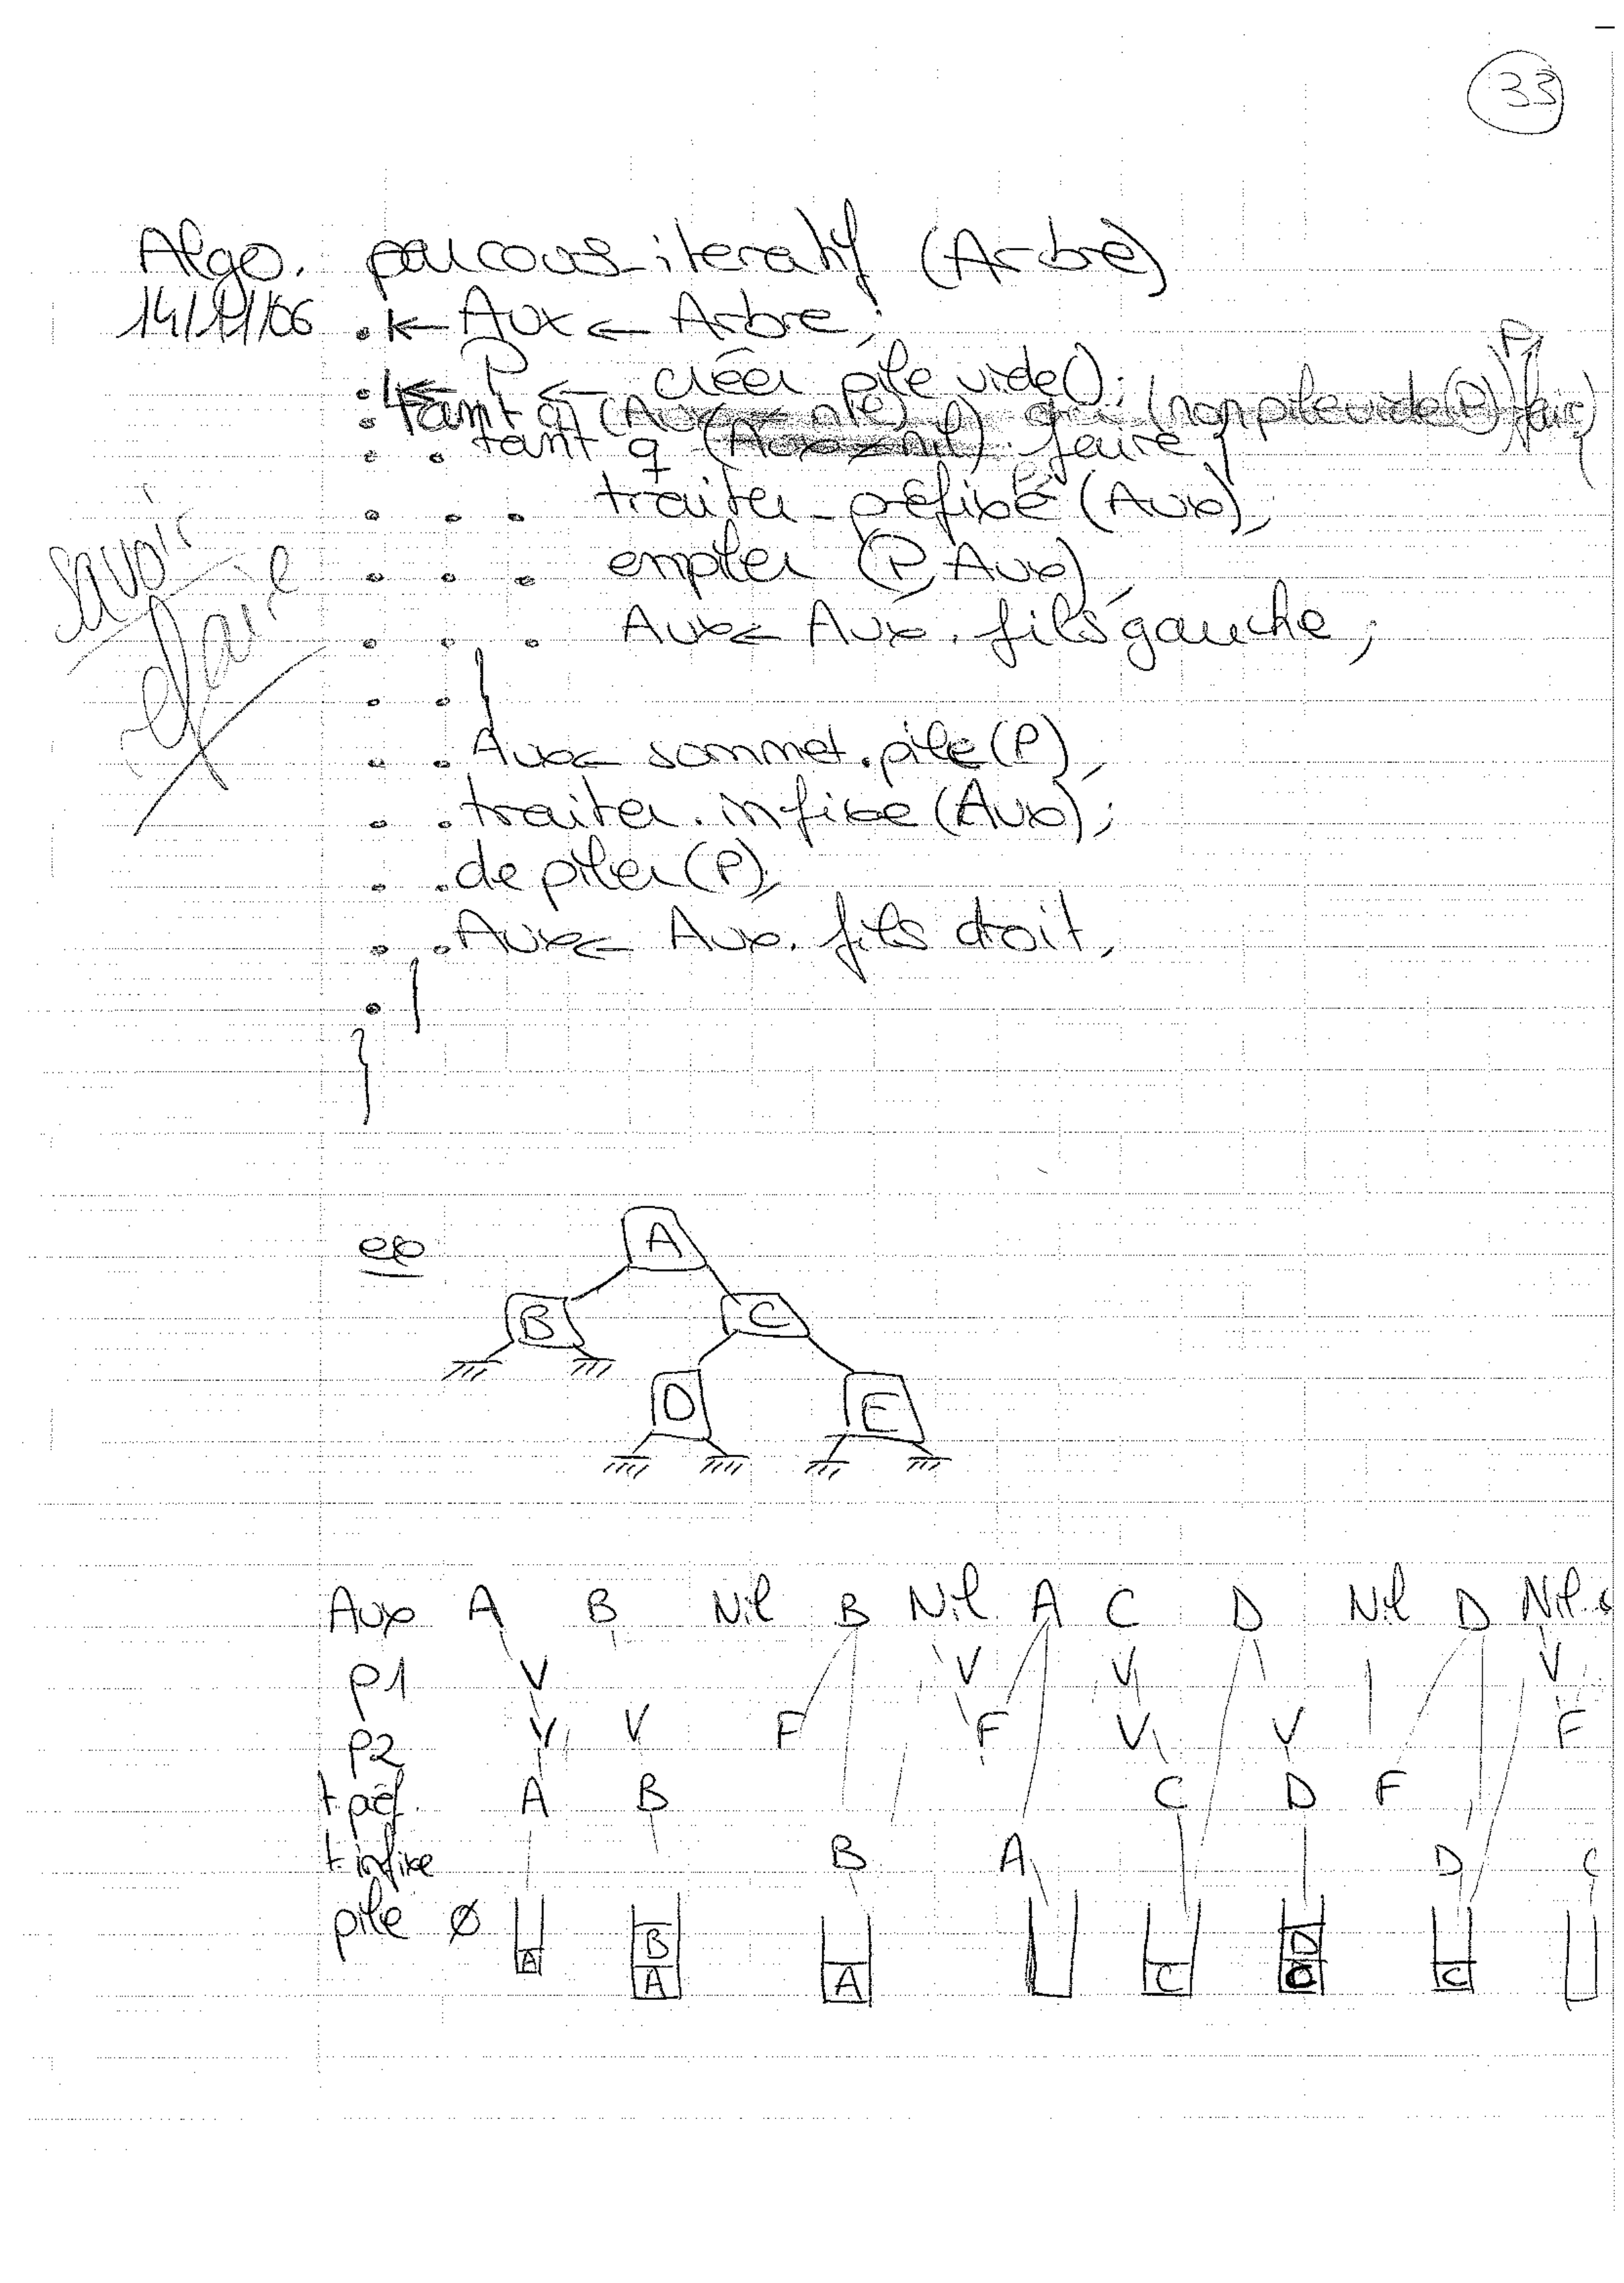 33
Algo. parcours_iteratif (Arbre)
14/11/06 . Aux ← Arbre;
. P ← créer pile vide();
. tant q (Aux nil) (non pilevide(P)) faire
. . tant q (Aux ≠ nil) faire {
. . . traiter_préfixé (Aux),
. . . empiler (P, Aux),
. . . Aux ← Aux. fils gauche;
savoir refaire
. . }
. . Aux ← sommet.pile (P),
. . traiter.infixe (Aux);
. . depiler (P),
. . Aux ← Aux. fils droit,
. }
}
ex
A
B C
D E
Aux A B Nil B Nil A C D Nil D Nil
P1 V V V V
P2 V V F F V V F
t préf. A B C D F
t. infixe B A D C
pile ∅ A B A A C D C C